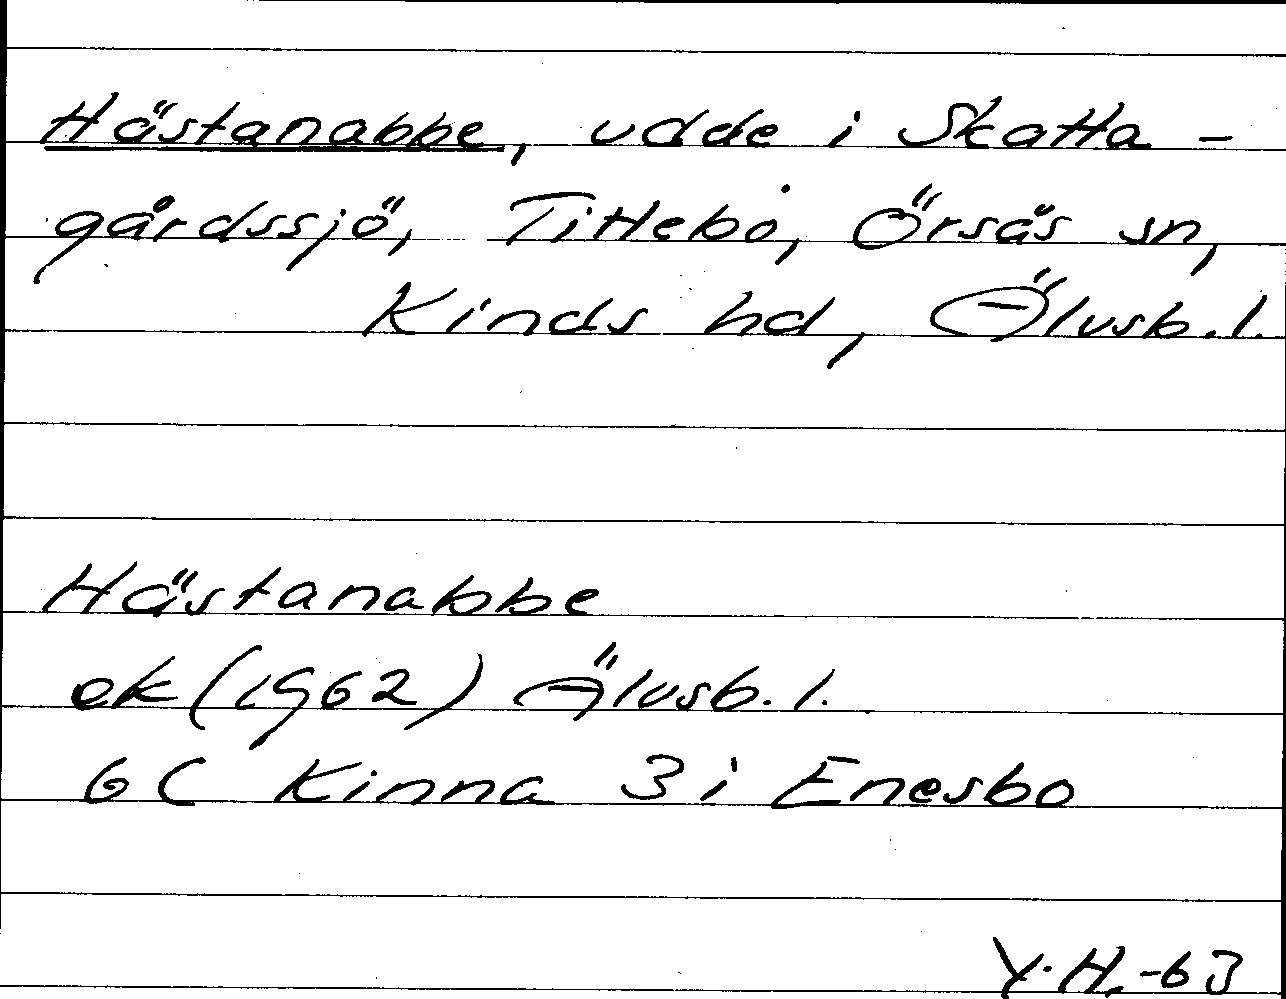 Hästanabbe, udde i Skatta-
gårdssjö, Tittebo, Örsås sn,
Kinds hd, Älvsb. l.
Hästanabbe
ek (1962) Älvsb. l.
6 C Kinna 3 i Enesbo
Y. H. -63